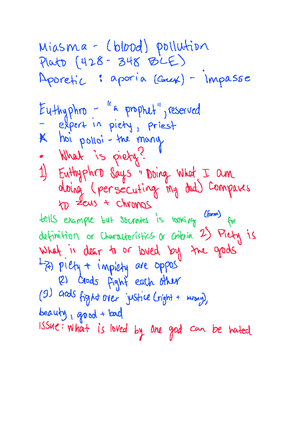 Miasma - (blood) pollution
Plato (428 - 348 BCE)
Aporetic : aporia (Greek) - impasse
Euthyphro - "a prophet", reserved
- expert in piety, priest
* hoi polloi - the many
• What is piety?
1) Euthyphro says "Doing what I am
doing (persecuting my dad) compares
to Zeus + chronos
tells example but Socrates is looking (form) for
definition or characteristics or criteria 2) Piety is
what is dear to or loved by the gods
piety + impiety are oppos
(2) Gods fight each other
(3) Gods fight over justice (right + wrong),
beauty, good + bad
issue: what is loved by one god can be hated